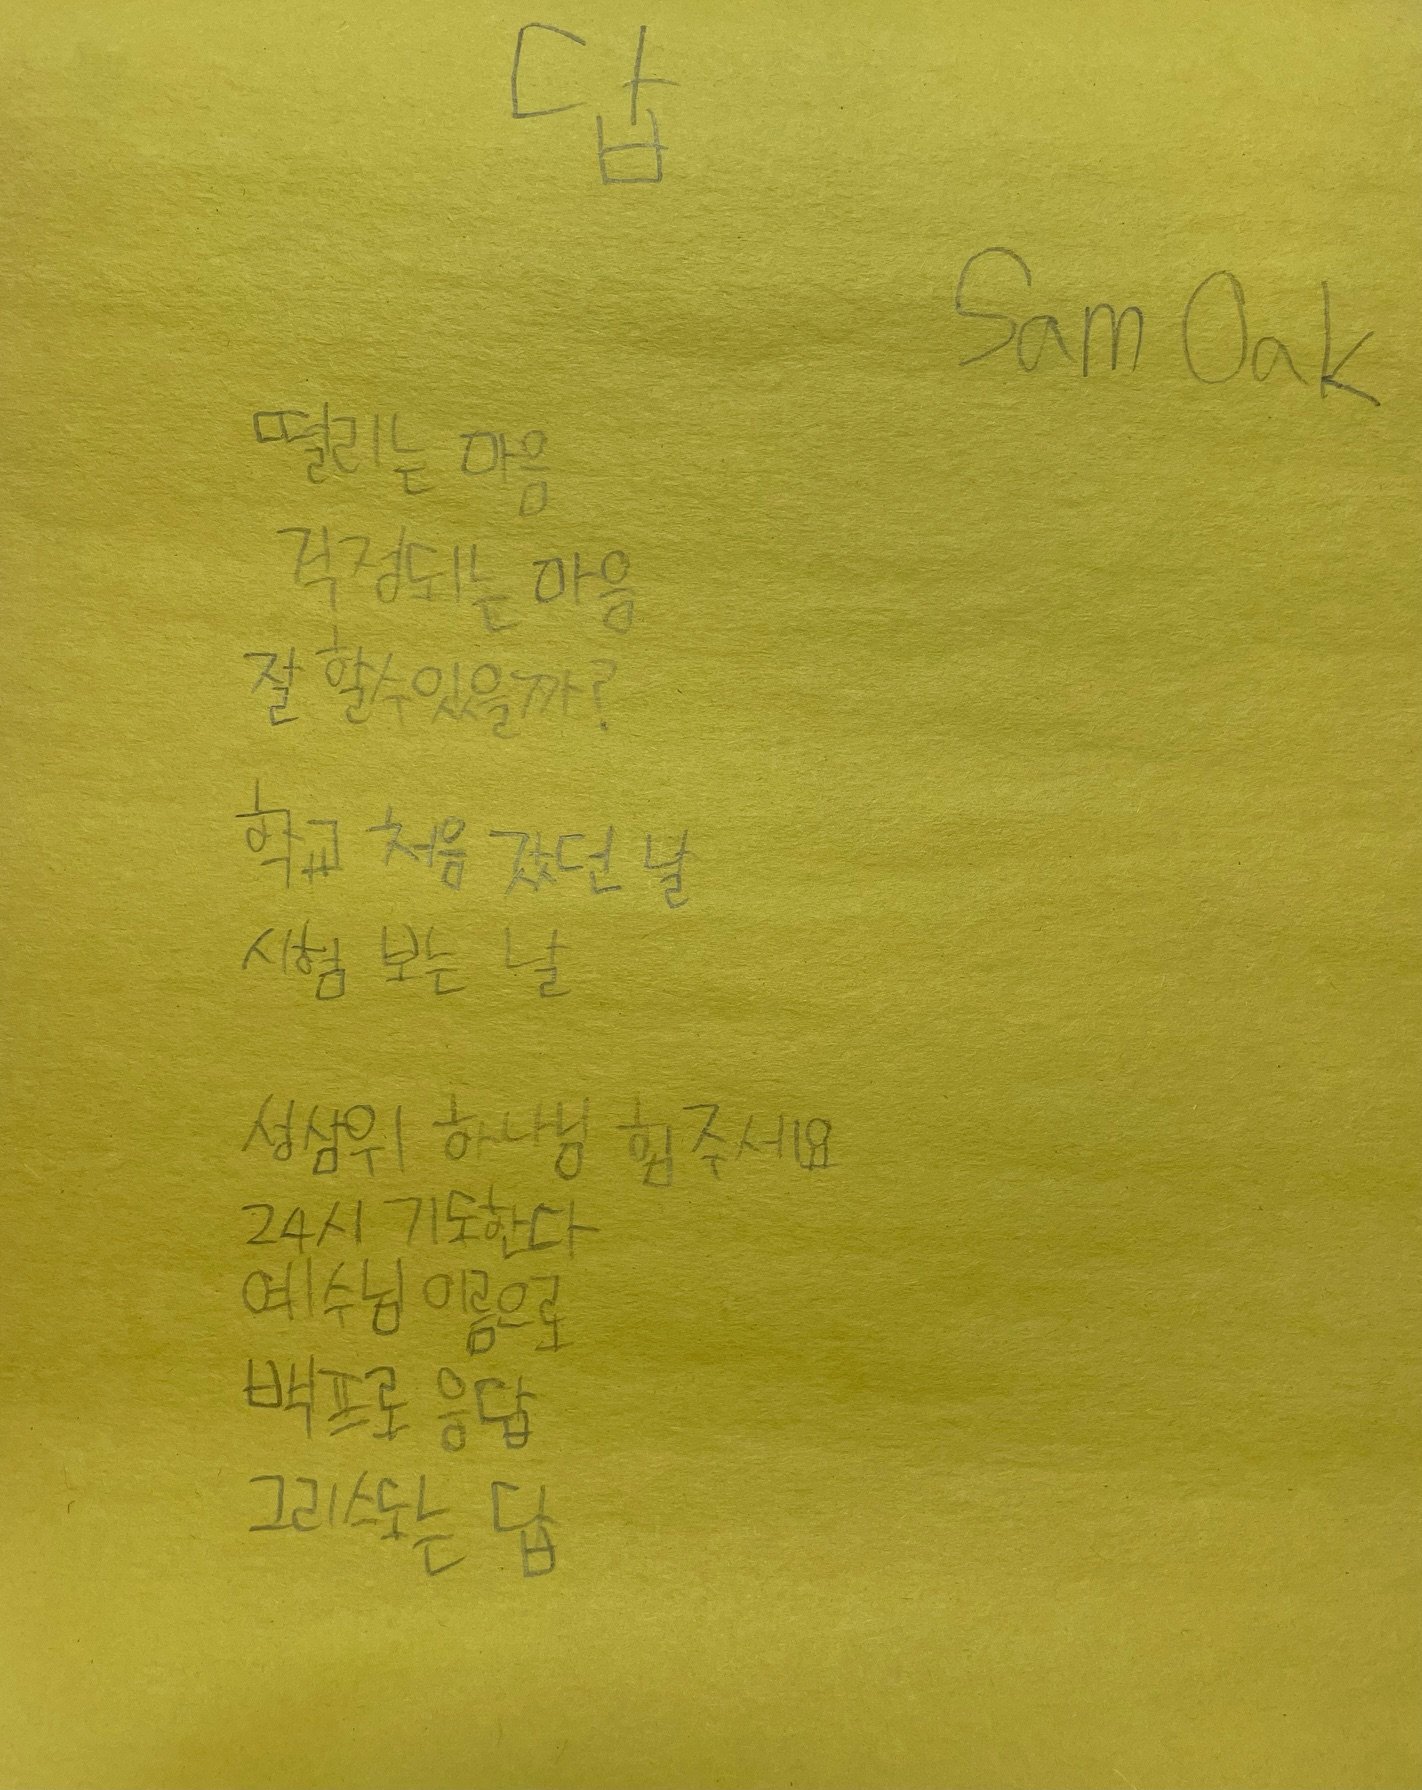 답
Sam Oak
떨리는 마음
걱정되는 마음
잘 할수있을까?
학교 처음 갔던 날
시험 보는 날
성삼위 하나님 힘주세요
24시 기도한다
예수님 이름으로
백프로 응답
그리스도는 답